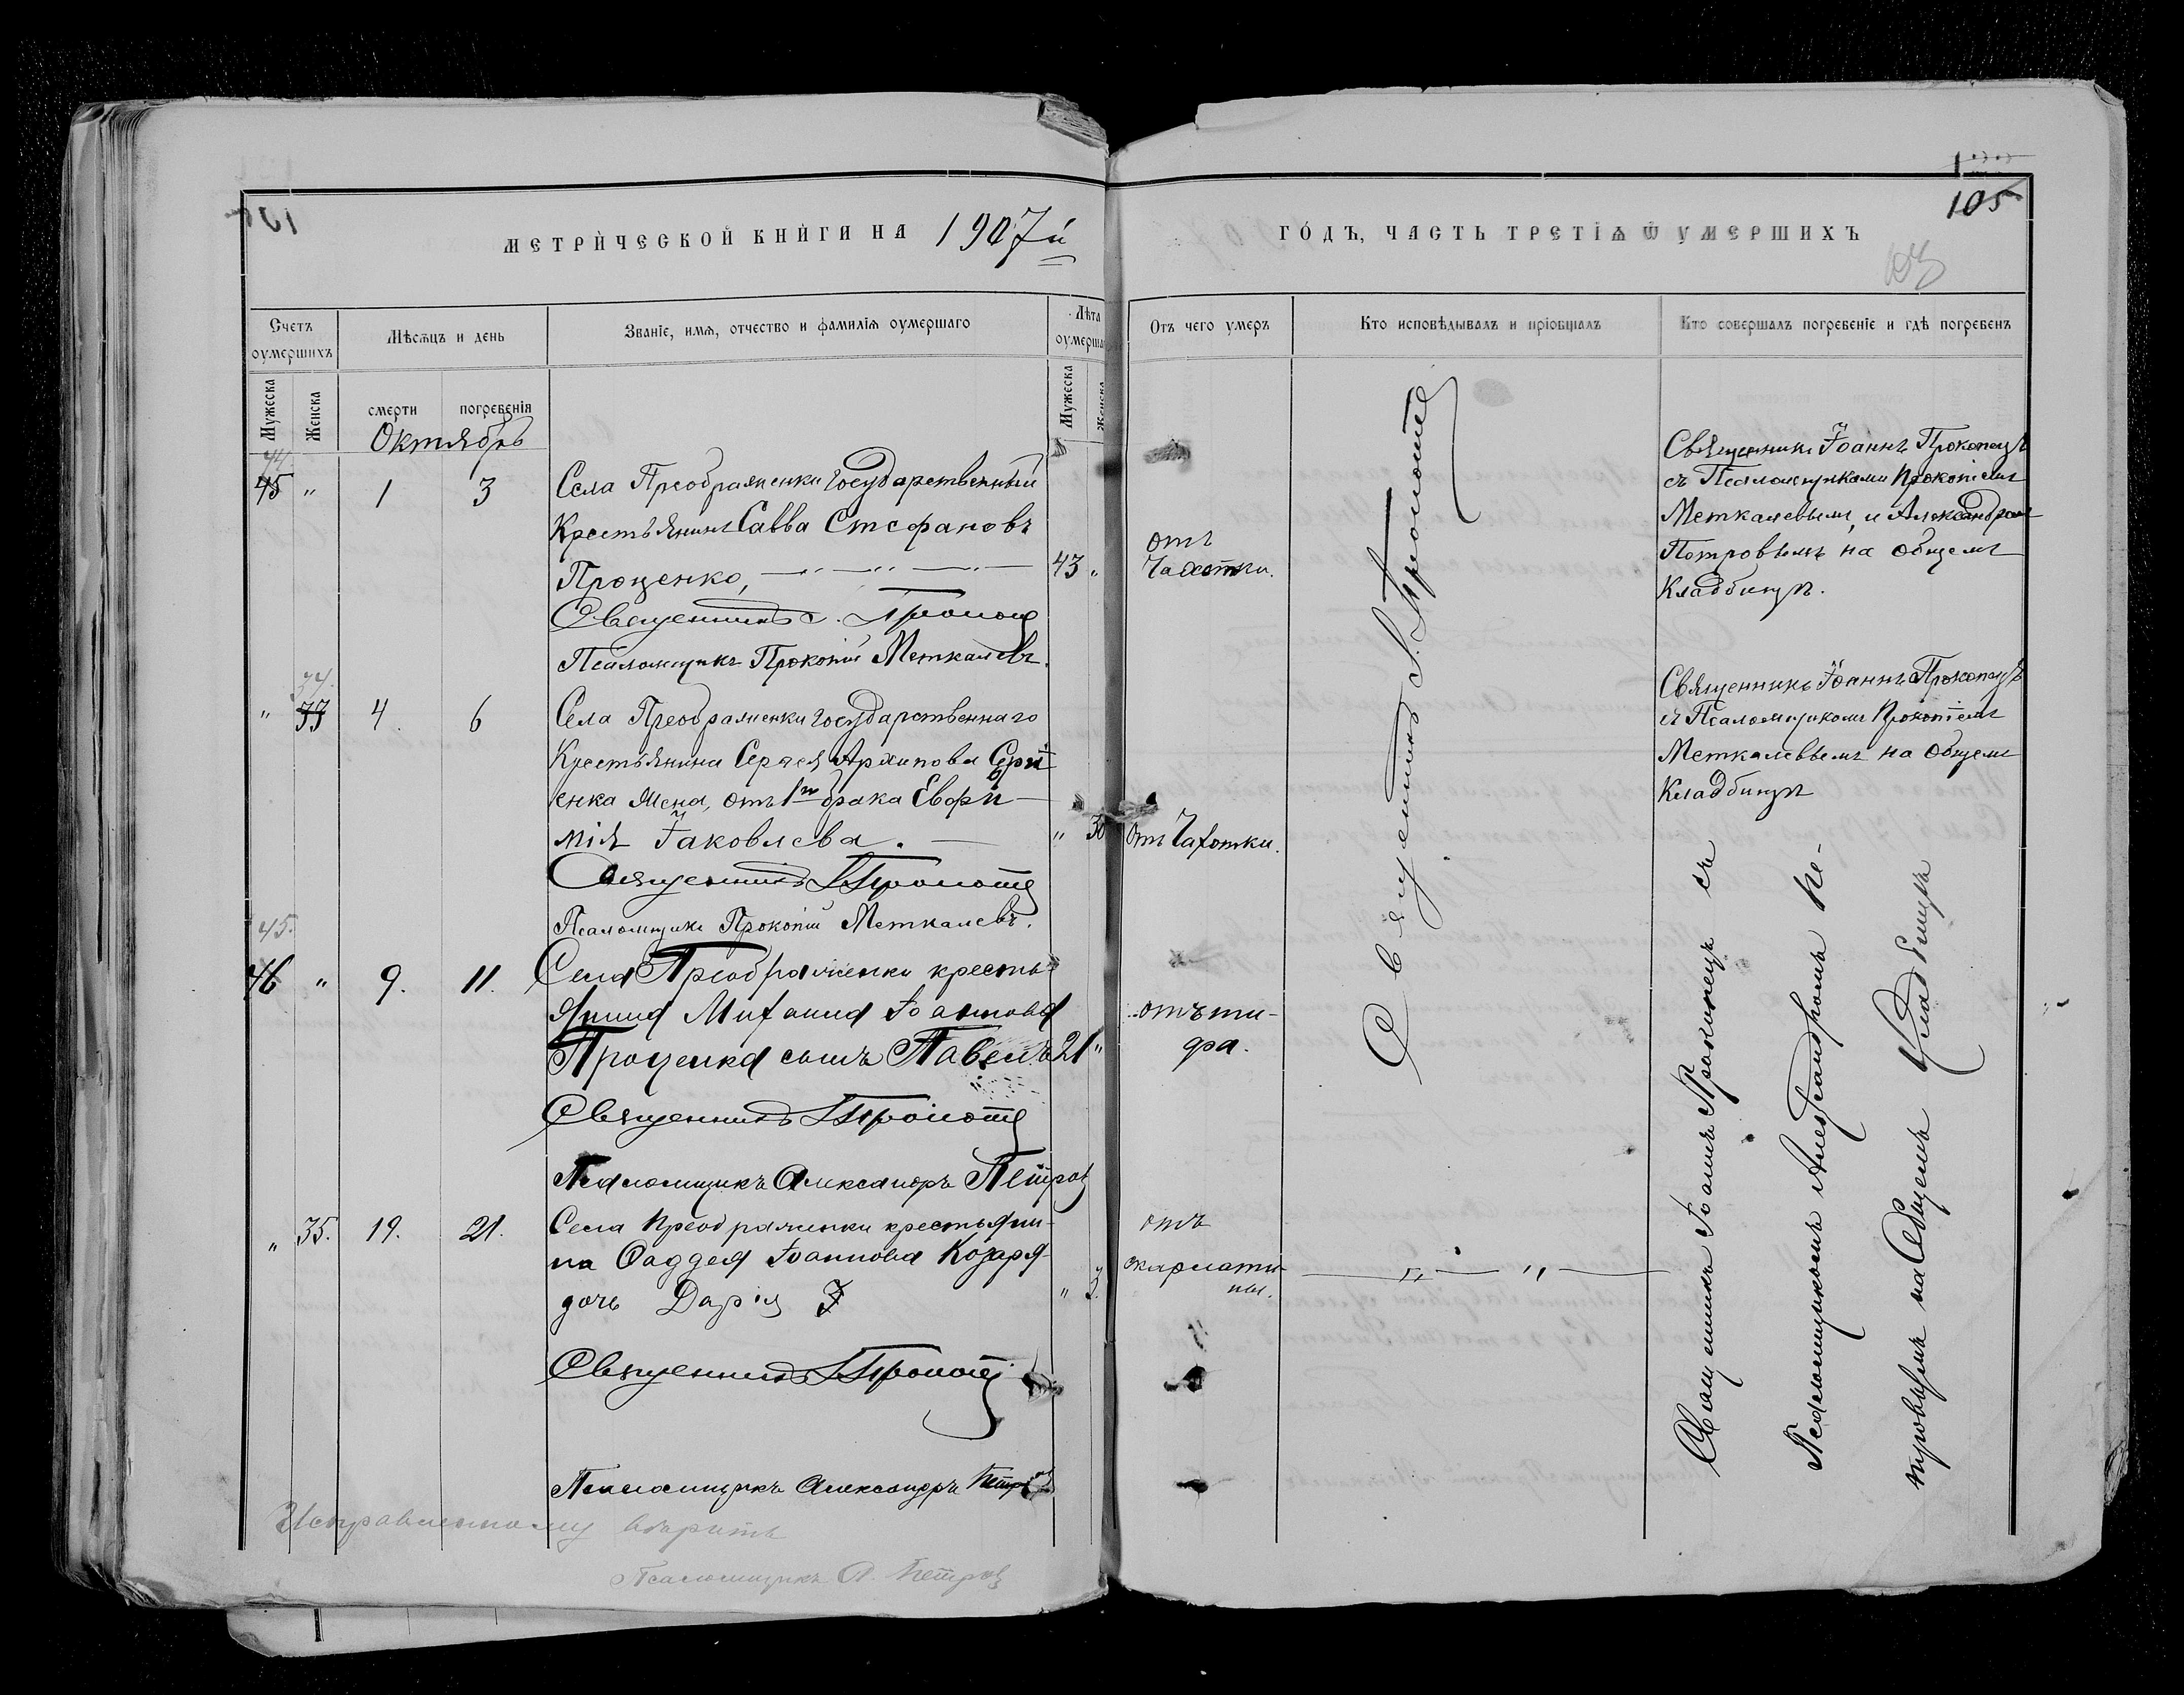 105
МЕТРИЧЕСКОЙ КНИГИ НА 1907й
ГОДЪ, ЧАСТЬ ТРЕТІѦ Ѿ УМЕРШИХЪ
Счетъ оумершихъ
Мѣсѧцъ и день
Званіе, имѧ, отчество и фамиліѧ оумершаго
Лѣта
Отъ чего умеръ
Кто исповѣдывалъ и пріобщалъ
Кто совершалъ погребеніе и гдѣ погребенъ
Мужеска
Женска
смерти
погребенія
Мужеска
Женска
Октябрь
44
45 " 1 3
Села Преображенки государственный
Крестьянинъ Савва Стефановъ
Проценко,
43 "
отъ
Чахотки.
Священникъ
Псаломщикъ Прокопій Меткалевъ.
Священникъ Іоаннъ Прокопецъ
съ Псаломщиками Прокопіемъ
Меткалевымъ, и Александромъ
Петровымъ на общемъ
Кладбищѣ.
34.
" 33 4. 6
Села Преображенки государственнаго
Крестьянина Сергея Архипова
енка жена, отъ 1го брака Евфи
мія Іаковлева.
" 30
отъ Чахотки.
Священникъ
Псаломщикъ Прокопій Меткалевъ.
Священникъ Іоаннъ Прокопецъ
съ Псаломщикомъ Прокопіемъ
Меткалевымъ на общемъ
Кладбищѣ
45.
46 " 9. 11.
Села Преображенки кресть-
янина Михаила Іоаннова
Проценка сынъ Павелъ
21 "
отъ ти-
фа.
Священникъ
Псаломщикъ Александръ Петровъ
" 35. 19. 21.
Села Преображенки крестьяни-
на Фаддея Іоаннова Козаря
дочь Дарія
" 3.
отъ
скарлати
ны.
Священникъ
Псаломщикъ Александръ Петровъ
Священникъ І.
Священникъ Іоаннъ Прокопецъ съ
Псаломщикомъ Александромъ Пе-
тровымъ на Общемъ Кладбищѣ
Исправленному вѣрить
Псаломщикъ А. Петровъ